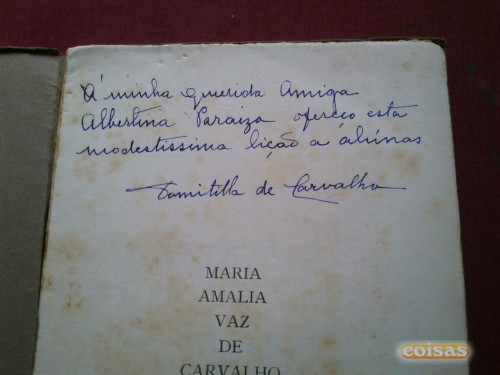 À minha querida Amiga
Albertina Paraiza ofereço esta
modestissima lição a alunas
Domitilla de Carvalho
MARIA
AMALIA
VAZ
DE
CARVALHO
coisas